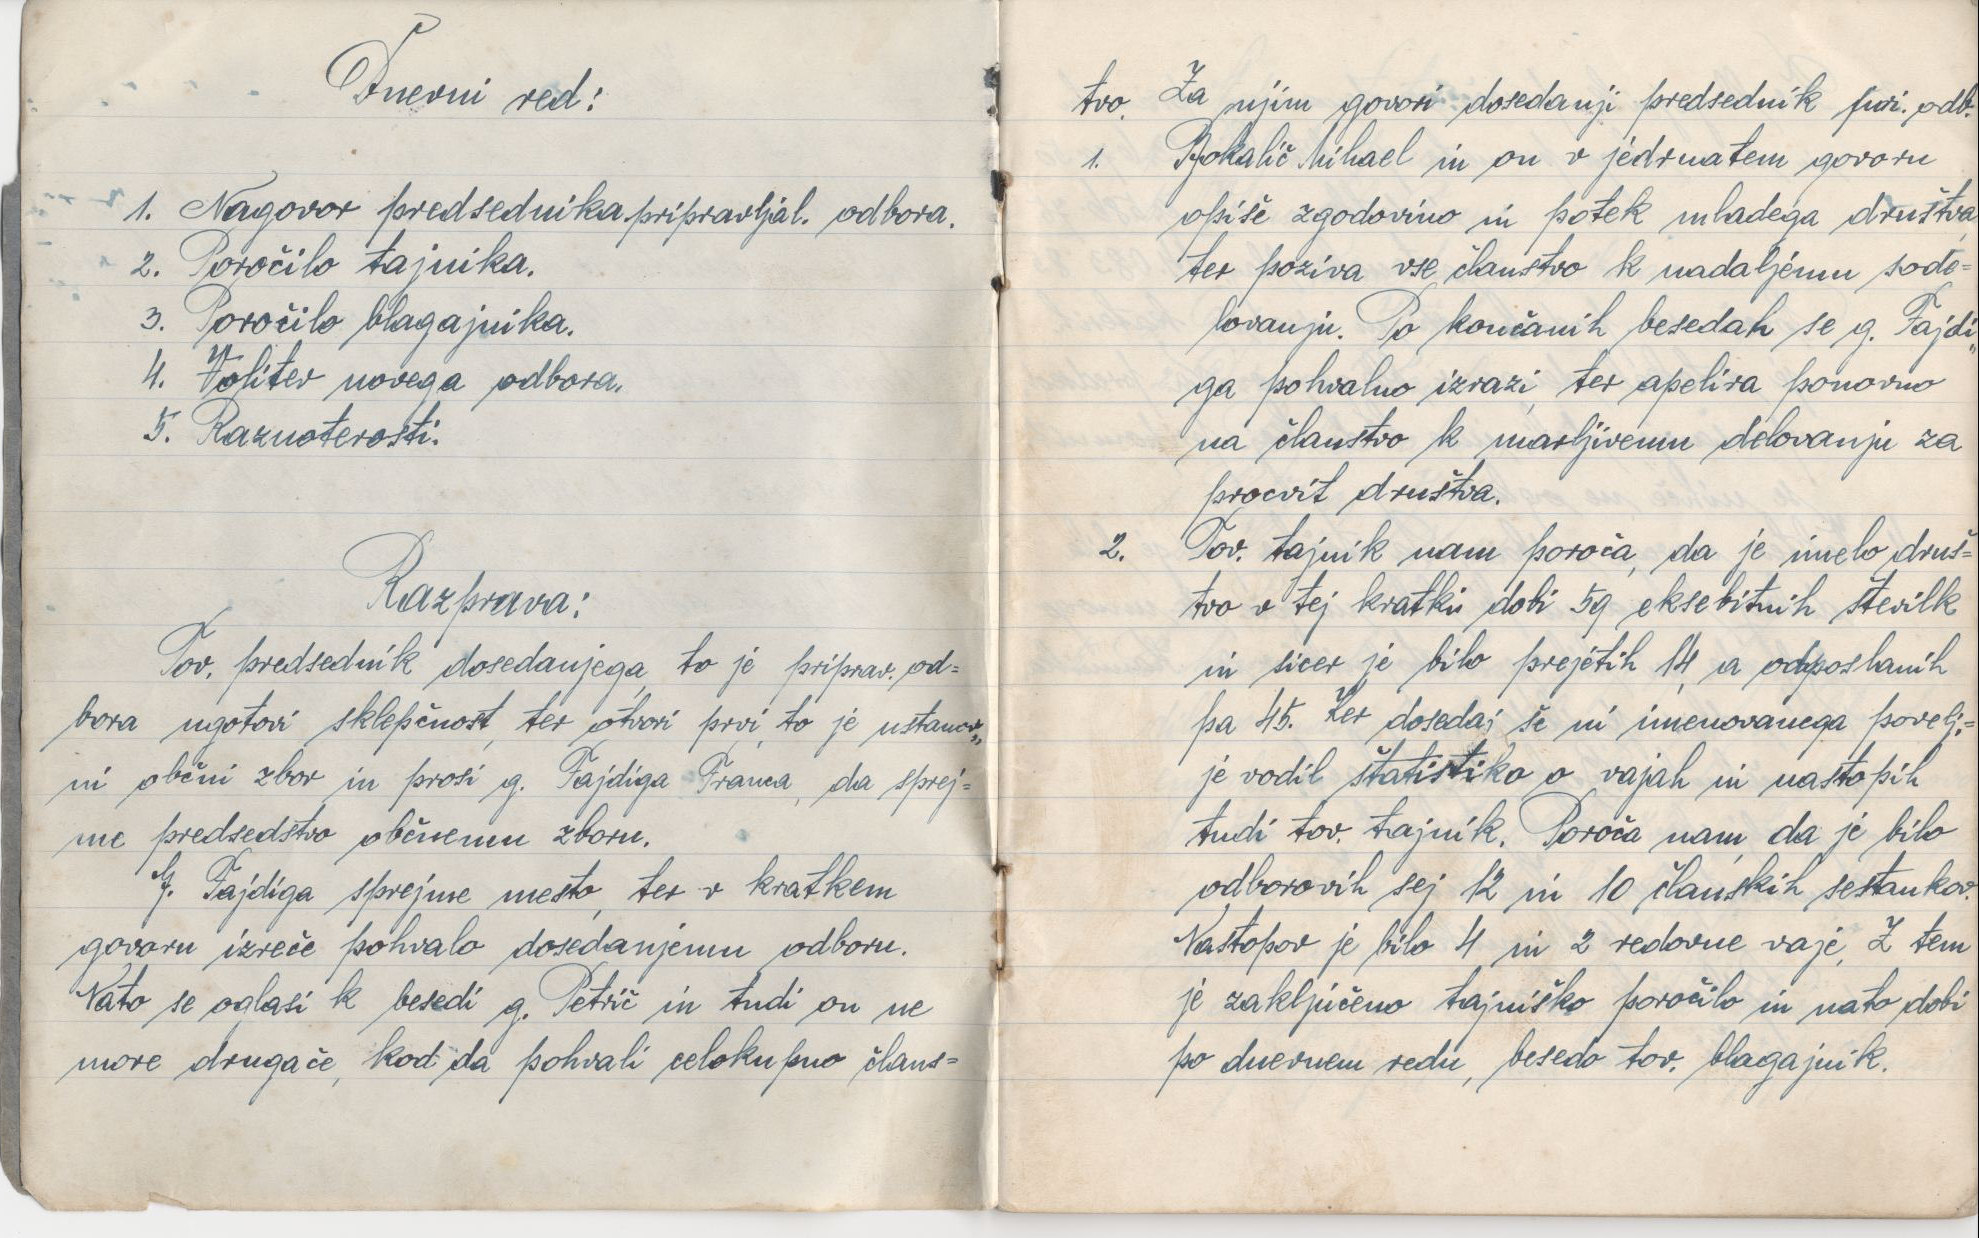 Dnevni red:
1. Nagovor predsednika pripravljal. odbora.
2. Poročilo tajnika.
3. Poročilo blagajnika.
4. Volitev novega odbora.
5. Raznoterosti.
Razprava:
Tov. predsednik dosedanjega, to je priprav. od=
bora ugotovi sklepčnost, ter otvori prvi, to je ustanov„
ni občni zbor in prosi g. Fajdiga Franca, da sprej=
me predsedstvo občnemu zboru.
G. Fajdiga sprejme mesto, ter v kratkem
govoru izreče pohvalo dosedanjemu odboru.
Nato se oglasi k besedi g. Petrič in tudi on ne
more drugače, kod da pohvali celokupno člans=
tvo. Za njim govori dosedanji predsednik odb.
1. Mihael in on v jedrnatem govoru
opiše zgodovino in potek mladega društva,
ter poziva vse članstvo k nadaljemu sode=
lovanju. Po končanih besedah se g. Fajdi„
ga pohvalno izrazi, ter apelira ponovno
na članstvo k marljivemu delovanju za
procvit društva.
2. Tov. tajnik nam poroča, da je imelo druš=
tvo v tej kratki dobi 59 eksebitnih številk
in sicer je bilo prejetih 14, a odposlanih
pa 45. Ker dosedaj še ni imenovanega povelj.=
je vodil štatistiko o vajah in nastopih
tudi tov. tajnik. Poroča nam, da je bilo
odborovih sej 12 in 10 članskih sestankov.
Nastopov je bilo 4 in 2 redovne vaje. Z tem
je zaključeno tajniško poročilo in nato dobi
po dnevnem redu, besedo tov. blagajnik.